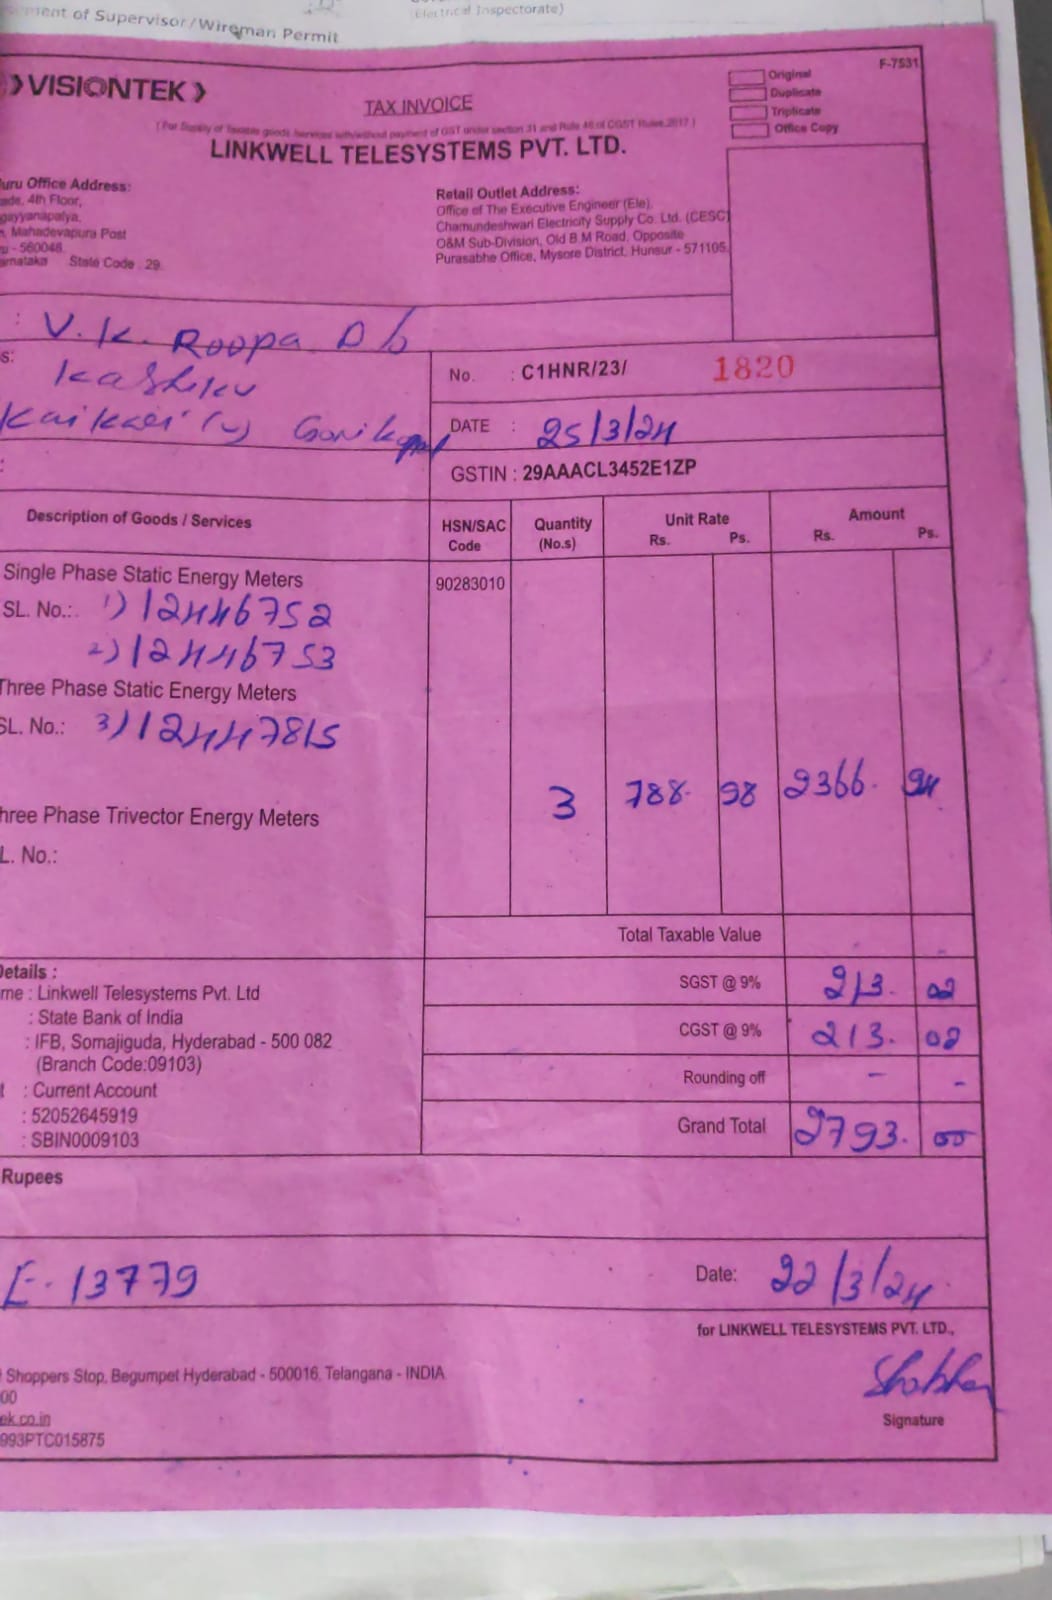 ment of Supervisor/Wireman Permit
Electrical Inspectorate)
VISIONTEK
F-7531
TAX INVOICE
Original
Duplicate
Triplicate
Office Copy
(For Supply of Taxable goods /services with/without payment of GST under section 31 and Rule 46 of CGST Rules 2017)
LINKWELL TELESYSTEMS PVT. LTD.
uru Office Address:
ade, 4th Floor,
gayyanapalya,
, Mahadevapura Post
u - 560048.
arnataka State Code : 29
Retail Outlet Address:
Office of The Executive Engineer (Ele),
Chamundeshwari Electricity Supply Co. Ltd. (CESC)
O&M Sub-Division, Old B.M Road, Opposite
Purasabhe Office, Mysore District, Hunsur - 571105.
: V.K. Roopa D/o
s:
No. : C1HNR/23/ 1820
DATE : 25/3/24
GSTIN : 29AAACL3452E1ZP
Description of Goods / Services
HSN/SAC Code
Quantity (No.s)
Unit Rate Rs. Ps.
Amount Rs. Ps.
Single Phase Static Energy Meters
90283010
SL. No.: 1) 12446752
2) 12446753
Three Phase Static Energy Meters
SL. No.: 3) 12447815
3 788. 98 2366. 94
hree Phase Trivector Energy Meters
L. No.:
Total Taxable Value
Details :
me : Linkwell Telesystems Pvt. Ltd
: State Bank of India
: IFB, Somajiguda, Hyderabad - 500 082
(Branch Code:09103)
t : Current Account
: 52052645919
: SBIN0009103
SGST @ 9% 213. 02
CGST @ 9% 213. 02
Rounding off - -
Grand Total 2793. 00
Rupees
E- 13779
Date: 22/3/24
for LINKWELL TELESYSTEMS PVT. LTD.,
Shoppers Stop, Begumpet Hyderabad - 500016. Telangana - INDIA
00
ek.co.in
993PTC015875
Signature